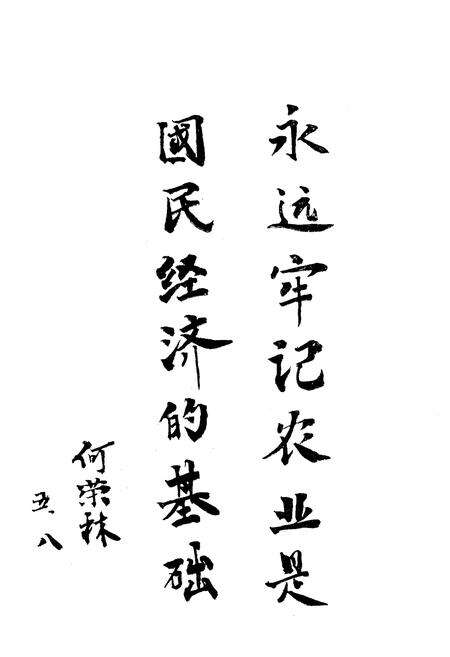 永远牢记农业是
國民经济的基础
何荣林
五.八